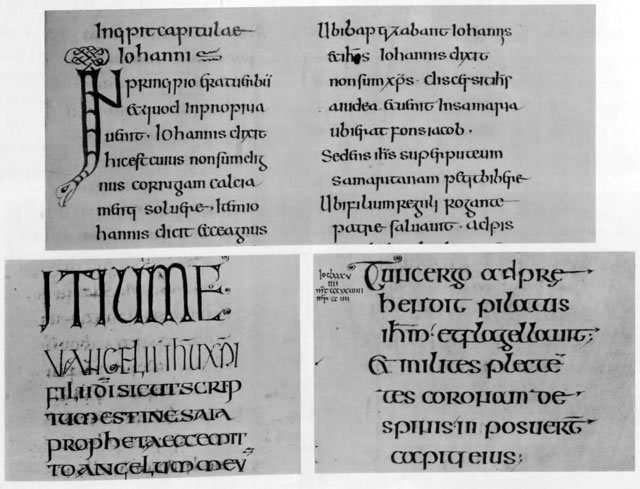 Incipit capitulae
Iohanni
IN principio erat uerbū
et quod in propria
uenit · Iohannis dicit
hic est cuius non sum dig
nus corrigam calcia
menti soluere · Item io
hannis dicit ecce agnus
Ubi bap tizabant iohannis
et ihs Iohannis dixit
non sum xp̄s · discesit ihs
a iudea et uenit in samaria
ubi erat fons iacob ·
Sedens ihs super puteum
samaritanam petit bibere
Ubi filium reguli rogante
patre saluauit · de pis
INITIUM E
UANGELII IH̄U XP̄I
FILII D̄I SICUT SCRIP
TUM EST IN ESAIA
PROPHETA ECCE MITT
TO ANGELUM MEU
Tunc ergo adpre
hendit pilatus
ihm̄ · et flagellauit ;
Et milites plecten̄
tes coronam · de
spinis inposuer̄
capiti eius ;